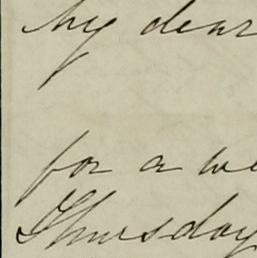 My dear
for a we
Thursday